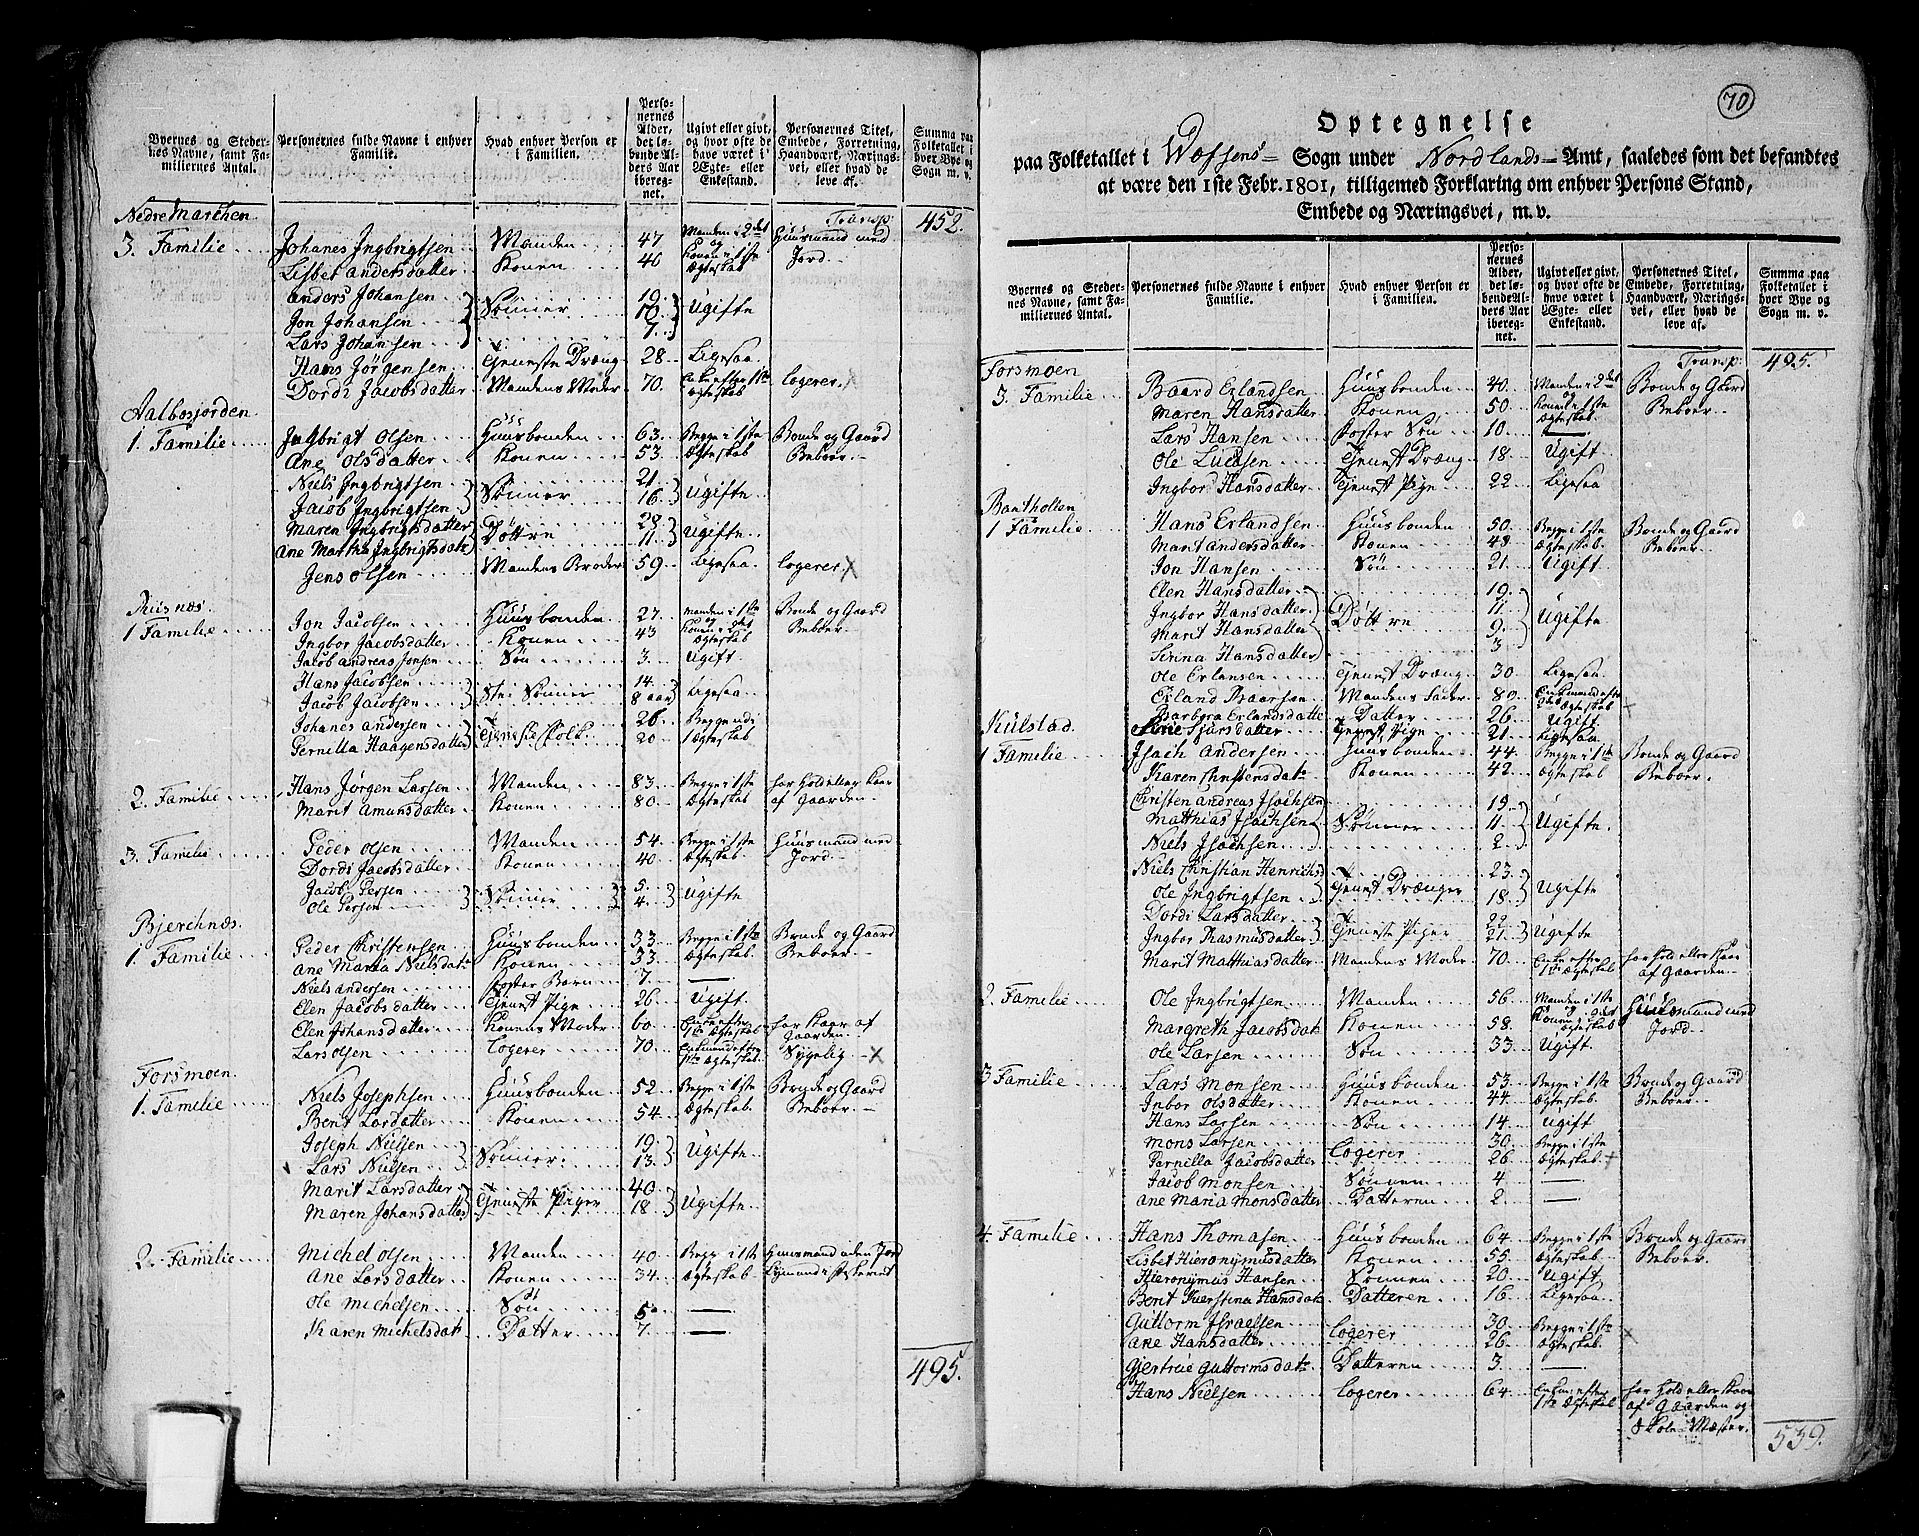 Byernes og Stedernes Navne, samt Familiernes Antal.
Personernes fulde Navne i enhver Familie.
Hvad enhver Person er i Familien.
Personernes Alder, det løbende Alders Aar iberegnet.
Ugivt eller givt, og hvor ofte de have været i Ægte- eller Enkestand.
Personernes Titel, Embede, Forretning, Haandværk, Næringsvei, eller hvad de leve af.
Summa paa Folketallet i hver Bye og Sogn m. v.
Transp: 452.
Nedre Marchen
3. Familie Johanes Ingbrigtsen Manden 47 Manden i 2det og Konen i 1ste Ægteskab Huusmand med Jord
Lisbet Andersdatter Konen 46
Anders Johansen Sønner 19 Ugifte
Jon Johansen 10
Lars Johansen 7
Hans Jørgensen Tjeneste Dræng 28 Ligesaa
Dordi Jacobsdatter Mandens Moder 70 Enke efter 1ste Ægteskab Logerer
Aalbosjorden
1. Familie Ingbrigt Olsen Huusbonden 63 Begge i 1ste Ægteskab Bonde og Gaard Beboer
Ane Olsdatter Konen 53
Niels Ingbrigtsen Sønner 21 Ugifte
Jacob Ingbrigtsen 16
Maren Ingbrigtsdatter Døttre 23 Ugifte
Ane Martha Ingbrigtsdatr 11
Jens Olsen Mandens Broder 59 Ligesaa Logerer
Rusnæs
1 Familie Jon Jacobsen Huusbonden 27 Manden i 1ste og Konen i 2det Ægteskab Bonde og Gaard Beboer
Ingbor Jacobsdatter Konen 43
Jacob Andreas Jonsen Søn 3 Ugift
Hans Jacobsen Sted Sønner 14 Ligesaa
Jacob Jacobsen 8 aar
Johanes Andersen Tjeneste Folk 26 Begge udi 1 Ægteskab
Pernilla Haagensdatter 20
2. Familie Hans Jørgen Larsen Manden 83 Begge i 1ste Ægteskab har hold eller Kaar af Gaarden
Marit Amunsdatter Konen 80
3. Familie Peder Olsen Manden 54 Begge i 1ste Ægteskab Huusmand med Jord
Dordi Jacobsdatter Konen 40
Jacob Persen Sønner 5 Ugifte
Ole Persen 4
Bjerchnæs
1. Familie Peder Christensen Huusbonden 33 Begge i 1ste Ægteskab Bonde og Gaard Beboer
Ane Maria Nielsdatr Konen 33
Niels Andersen Foster Barn 7
Elen Jacobsdatter Tjenest Pige 26 Ugift
Elen Johansdatter Konens Moder 60 Enke efter 1ste Ægteskab har Kaar af Gaarden
Lars Olsen Logerer 70 Enkemand efter 1ste Ægteskab Sygelig
Forsmoen
1. Familie Niels Josephsen Huusbonden 52 Begge i 1ste Ægteskab Bonde og Gaard Beboer
Berit Larsdatter Konen 54
Joseph Nielsen Sønner 19 Ugifte
Lars Nielsen 13
Marit Larsdatter Tjeneste Piger 40 Ugifte
Maren Johansdatter 18
2. Familie Michel Olsen Manden 40 Begge i 1ste Ægteskab Huusmand uden Jord
Ane Larsdatter Konen 34
Ole Michelsen Søn 5
Karen Michelsdatr Datter 7
495.
70
Optegnelse
paa Folketallet i Wefsens Sogn under Nordlands Amt, saaledes som det befandtes
at være den 1ste Febr. 1801, tilligemed Forklaring om enhver Persons Stand,
Embede og Næringsvei, m. v.
Byernes og Stedernes Navne, samt Familiernes Antal.
Personernes fulde Navne i enhver Familie.
Hvad enhver Person er i Familien.
Personernes Alder, det løbende Alders Aar iberegnet.
Ugivt eller givt, og hvor ofte de have været i Ægte- eller Enkestand.
Personernes Titel, Embede, Forretning, Haandværk, Næringsvei, eller hvad de leve af.
Summa paa Folketallet i hver Bye og Sogn m. v.
Transp: 495.
Forsmoen
3. Familie Baard Erlandsen Huusbonden 40 Manden i 2det og Konen i 1ste Ægteskab Bonde og Gaard Beboer
Maren Hansdatter Konen 50
Lars Hansen Foster Søn 10
Ole Luedsen Tjenest Dræng 18 Ugift
Ingbor Hansdatter Tjenest Pige 22 Ligesaa
Bantholten
1 Familie Hans Erlandsen Huusbonden 50 Begge i 1ste Ægteskab Bonde og Gaard Beboer
Marit Andersdatter Konen 48
Jon Hansen Søn 21 Ugift
Elen Hansdatter Døttre 19 Ugifte
Ingbor Hansdatter 11
Marit Hansdatter 9
Serina Hansdatter 3
Ole Erlensen Tjenest Dræng 30 Ligesaa
Erland Baarsen Mandens Fader 80 Enkemand efter Ægteskab
Barbara Erlandsdatter Datter 26 Ugift
Sjursdatter Tjenest Pige 21 Ligesaa
Kulstad
1 Familie Isach Andersen Huusbonden 44 Begge i 1ste Ægteskab Bonde og Gaard Beboer
Karen Christensdatr Konen 42
Christen Andreas Isachsen Sønner 19 Ugifte
Matthias Isachsen 11
Niels Isachsen 2
Niels Christian Henrichs Tjenest Drænger 23 Ugifte
Ole Ingbrigtsen 18
Dordi Larsdatter Tjeneste Piger 22 Ugifte
Ingbor Rasmusdatter 21
Marit Matthiasdatter Mandens Moder 70 Enke efter 1ste Ægteskab har hold eller Kaar af Gaarden
2. Familie Ole Ingbrigtsen Manden 56 Manden i 1ste og Konen i 2det Ægteskab Huusmand med Jord
Margreth Jacobsdatr Konen 58
Ole Larsen Søn 33 Ugift
3 Familie Lars Monsen Huusbonden 53 Begge i 1ste Ægteskab Bonde og Gaard Beboer
Inbor Olsdatter Konen 44
Hans Larsen Søn 14 Ugift
Mons Larsen Logerer 30 Begge i 1ste Ægteskab
Pernilla Jacobsdatter 26
Jacob Monsen Sønnen 4
Ane Maria Monsdatter Datteren 2
4. Familie Hans Thomasen Huusbonden 64 Begge i 1ste Ægteskab Bonde og Gaard Beboer
Lisbet Hieronymusdatter Konen 55
Hieronymus Hansen Sønnen 20 Ugift
Berit Kierstina Hansdatr Datteren 16 Ligesaa
Guttorm Israelsen Logerer 30 Begge i 1ste Ægteskab
Ane Hansdatter 26
Gjertrue Guttormsdatr Datteren 3
Hans Nielsen Logerer 64 Enkem: efter 1ste Ægteskab har hold eller Kaar af Gaarden og Skole Mæster
539.